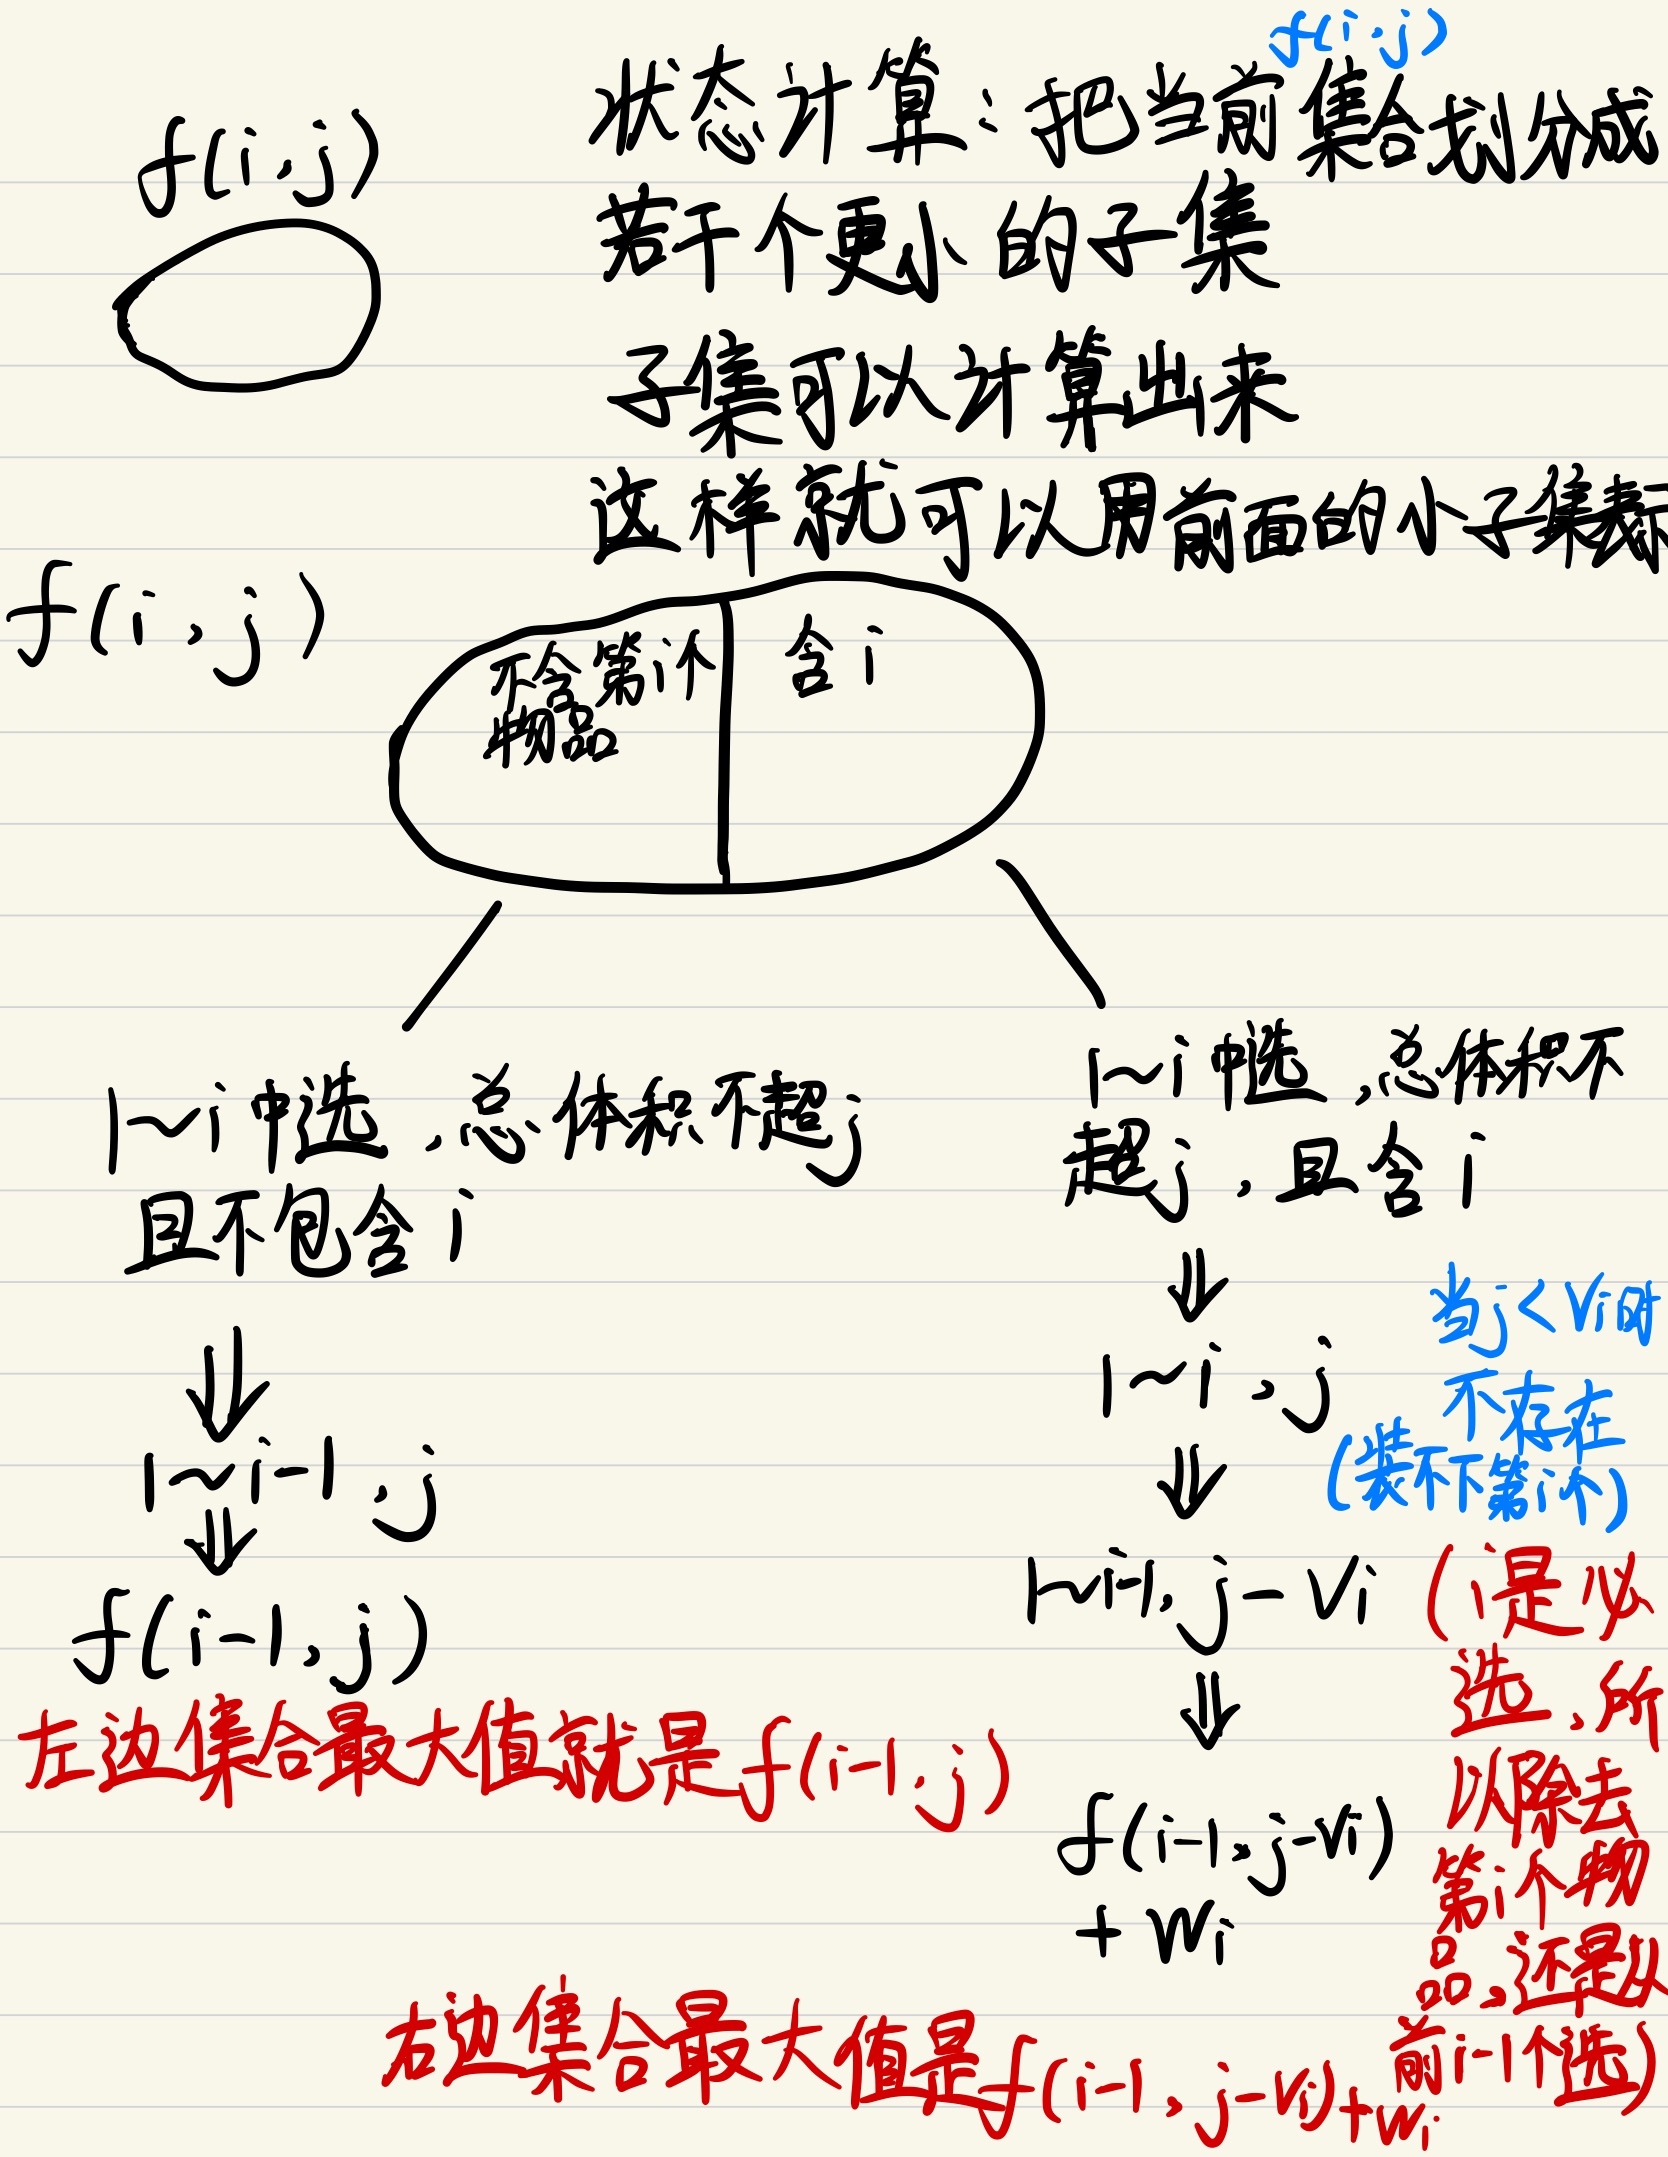 f(i,j)
f(i,j)
状态计算：把当前集合划分成
若干个更小的子集
子集可以计算出来
这样就可以用前面的小子集表示
f(i,j)
不含第i个
物品
含i
1~i中选,总体积不超j
且不包含i
⇓
1~i-1,j
⇓
f(i-1,j)
左边集合最大值就是f(i-1,j)
1~i中选,总体积不
超j,且含i
⇓
1~i,j
⇓
1~i-1,j-Vi
⇓
f(i-1,j-Vi)
+Wi
当j<Vi时
不存在
(装不下第i个)
(i是必
选,所
以除去
第i个物
品,还是从
前i-1个选)
右边集合最大值是f(i-1,j-Vi)+Wi